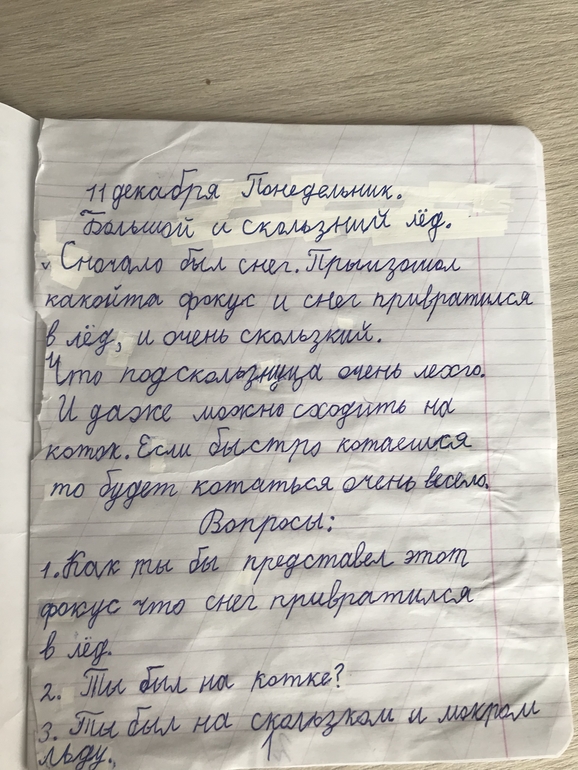 11 декабря Понедельник.
Большой и скользний лёд.
Сночало был снег. Прыизошол
какойта фокус и снег привратился
в лёд, и очень скользкий.
Что подскользнуца очень лехго.
И даже можно сходить на
коток. Если быстро котаешся
то будет котаться очень весело.
Вопросы:
1. Как ты бы представел этот
фокус что снег привратился
в лёд.
2. Ты был на котке?
3. Ты был на скользком и мокром
льду.